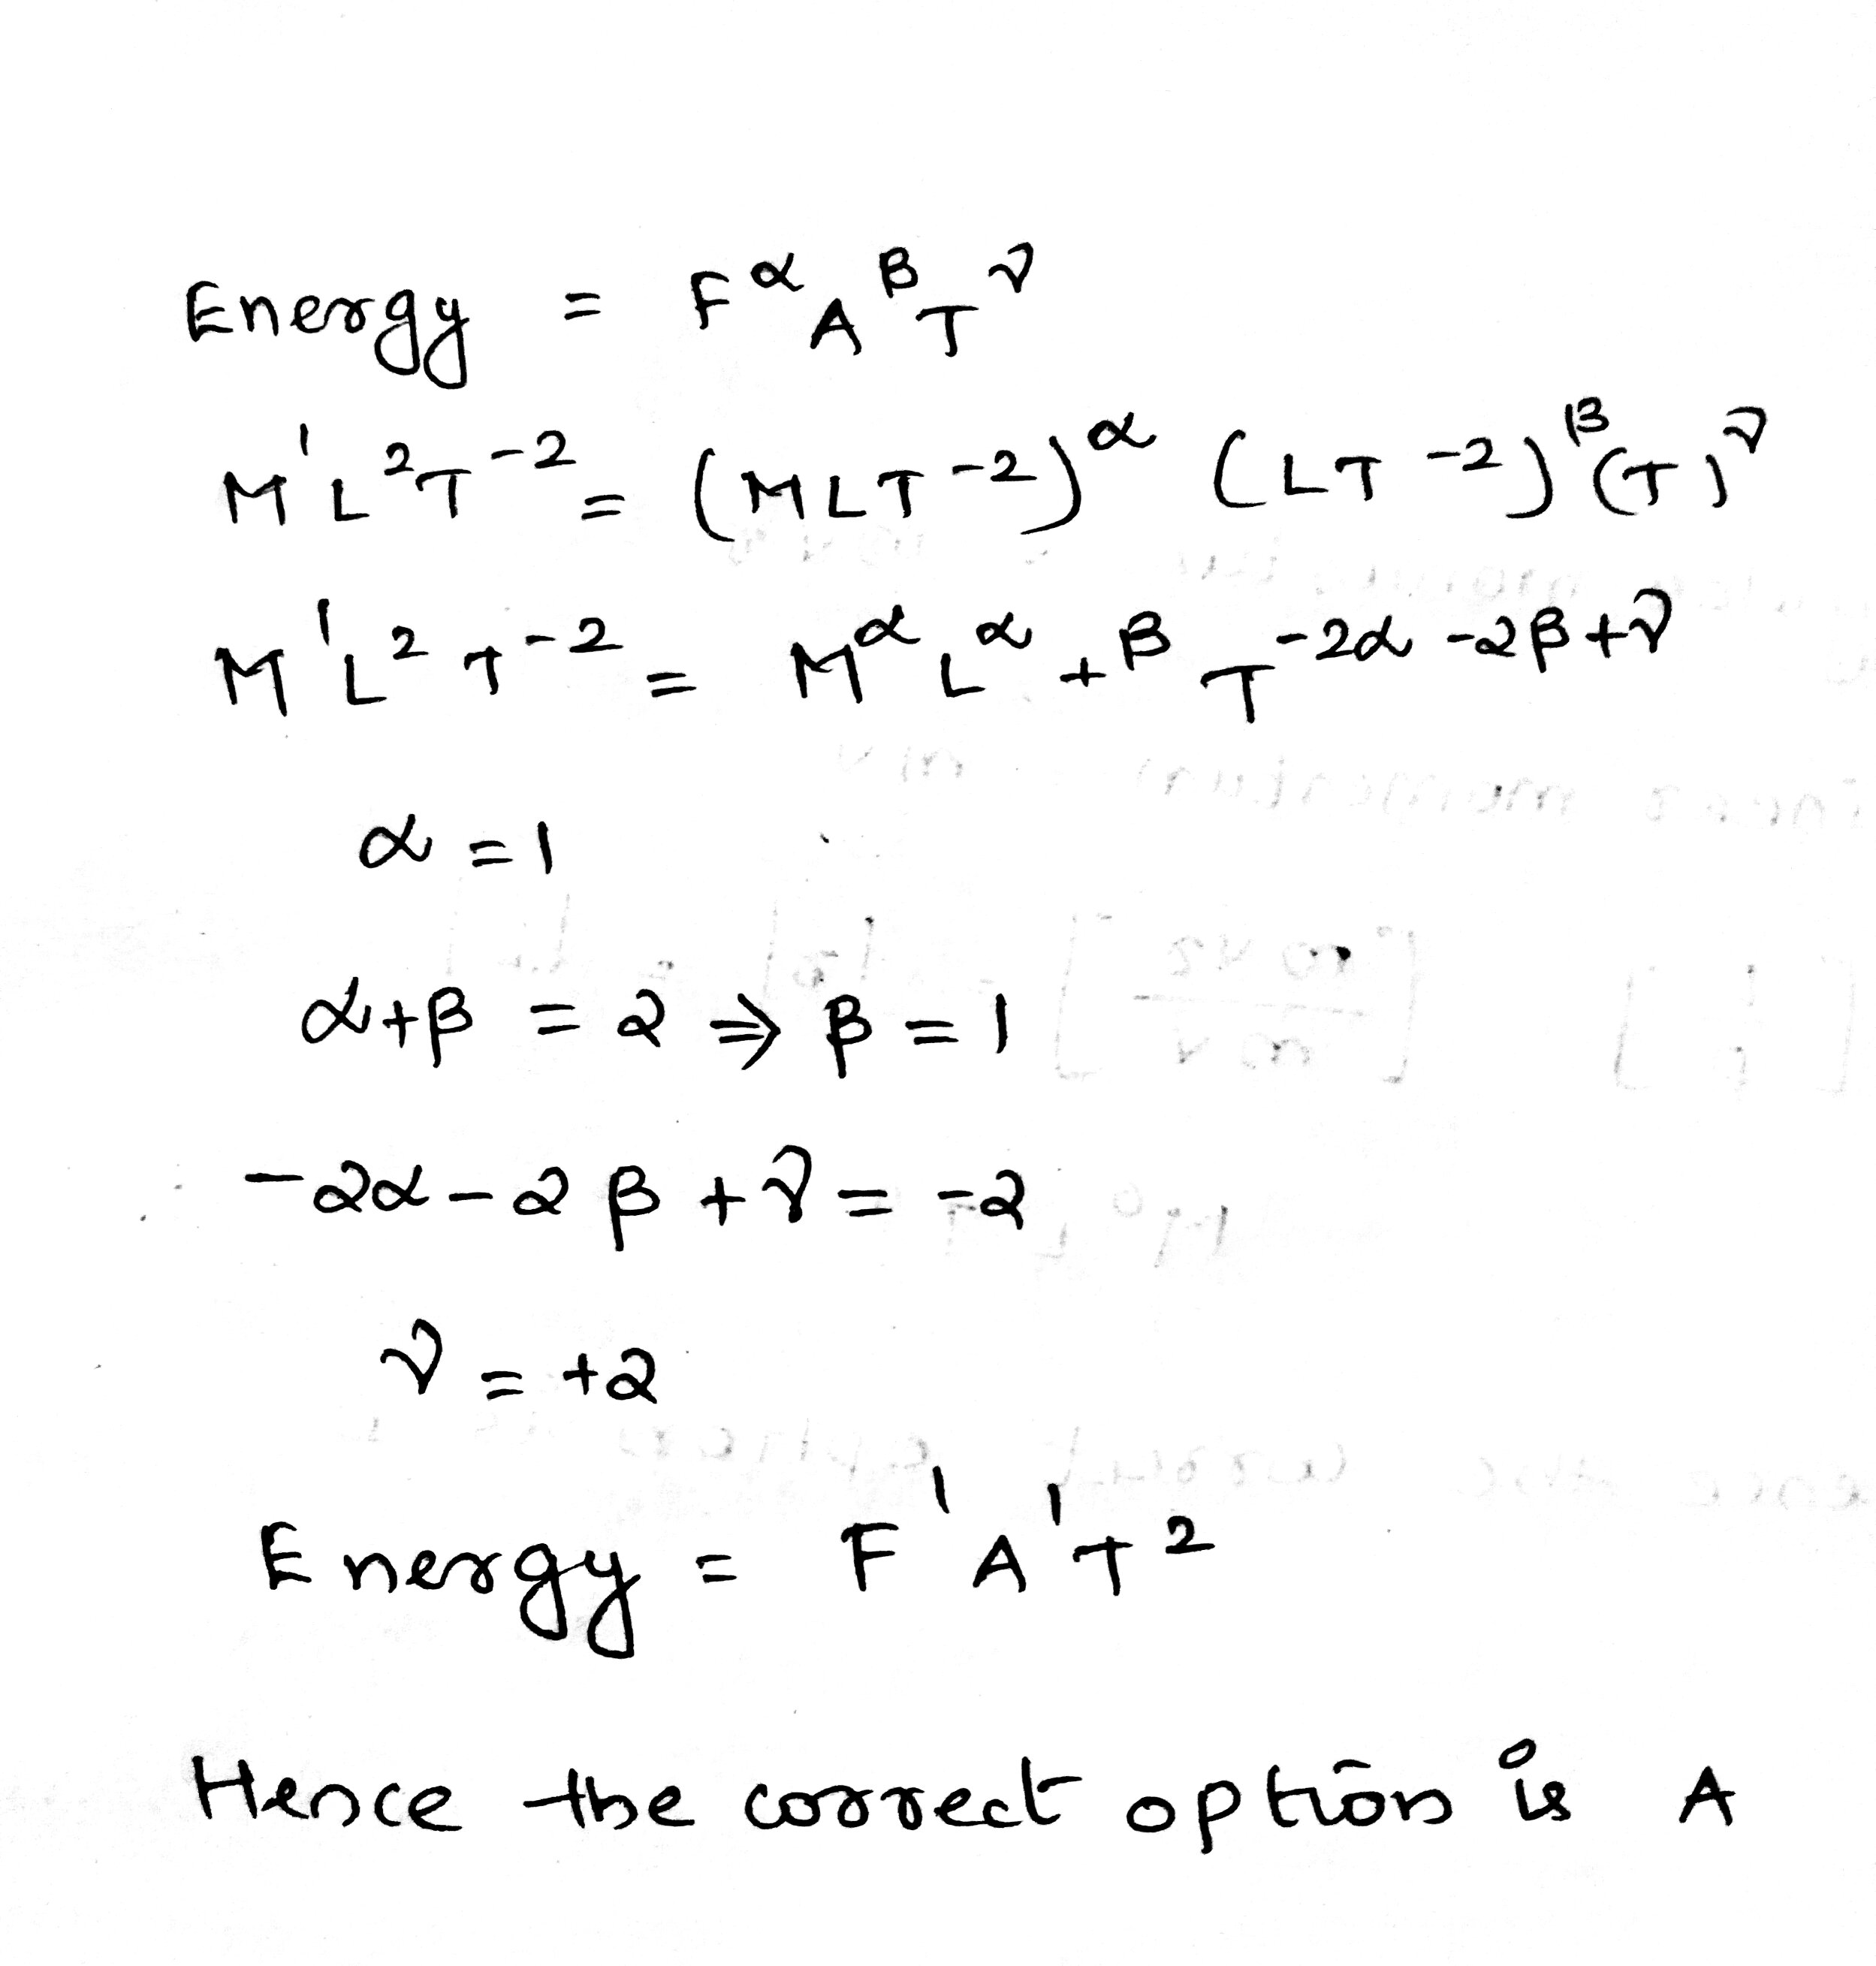 Energy = F^α A^β T^γ
M^1 L^2 T^-2 = (MLT^-2)^α (LT^-2)^β (T)^γ
M^1 L^2 T^-2 = M^α L^α+β T^-2α-2β+γ
α = 1
α+β = 2 ⇒ β = 1
-2α-2β+γ = -2
γ = +2
Energy = F^1 A^1 T^2
Hence the correct option is A